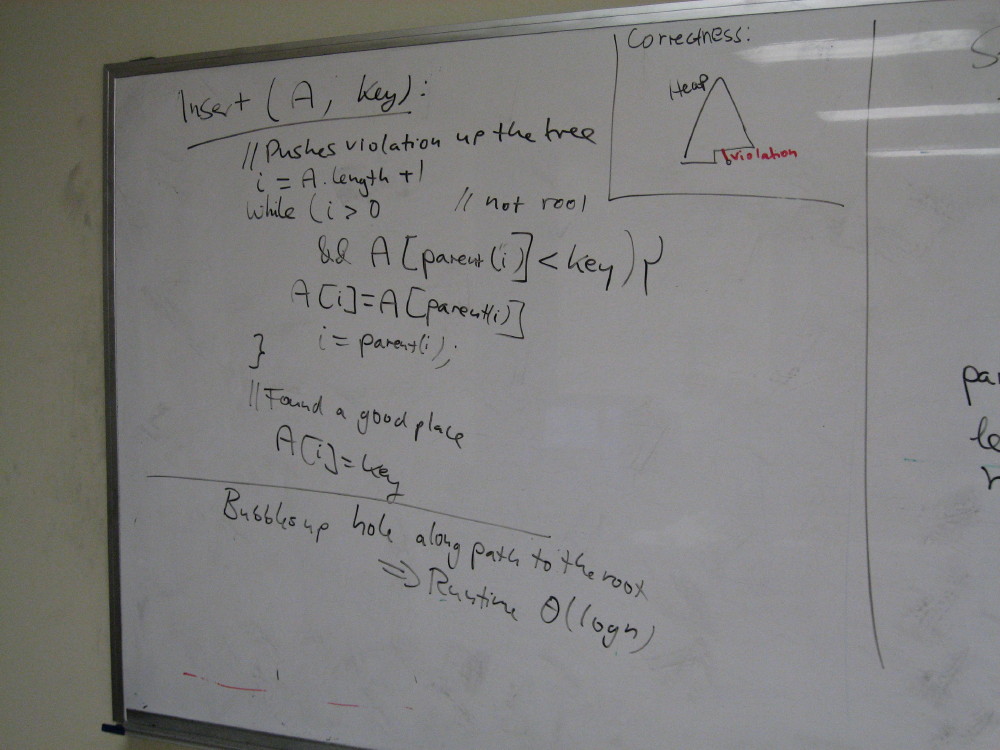 Insert (A, key):
// Pushes violation up the tree
i = A.length + 1
while (i > 0 // not root
&& A[parent(i)] < key) {
A[i] = A[parent(i)]
i = parent(i);
}
// Found a good place
A[i] = key
Bubbles up hole along path to the root
=> Runtime Θ(log n)
Correctness:
Heap
violation
S
par
le